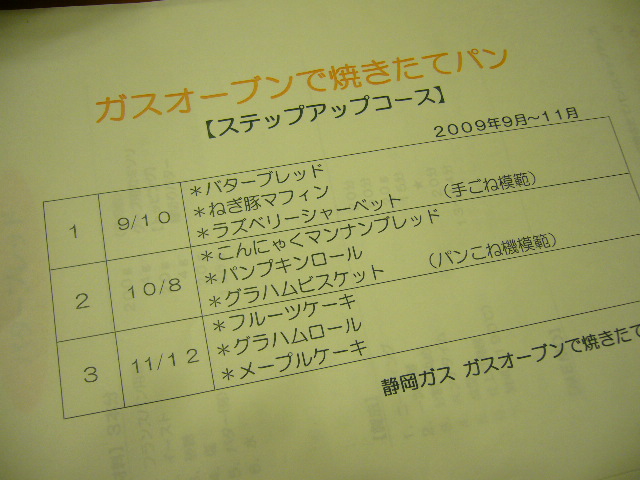 ガスオーブンで焼きたてパン
【ステップアップコース】
2009年9月～11月
1 9/10 ＊バターブレッド
＊ねぎ豚マフィン
＊ラズベリーシャーベット (手ごね模範)
2 10/8 ＊こんにゃくマンナンブレッド
＊パンプキンロール
＊グラハムビスケット (パンこね機模範)
3 11/12 ＊フルーツケーキ
＊グラハムロール
＊メープルケーキ
静岡ガス ガスオーブンで焼きたて